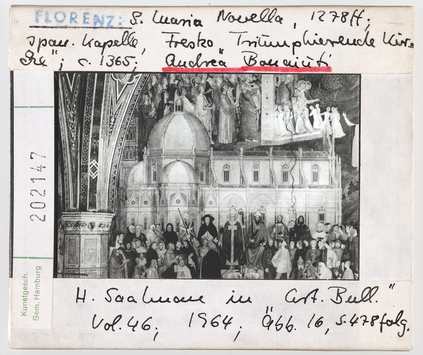 FLORENZ: S. Maria Novella, 1278ff;
Span. Kapelle, Fresko "Triumphierende Kir-
che"; c. 1365; Andrea Bonaiuti
202147
Kunstgesch.
Sem. Hamburg
H. Saalmann in "Art. Bull."
Vol. 46, 1964, Abb. 16, S. 478 folg.